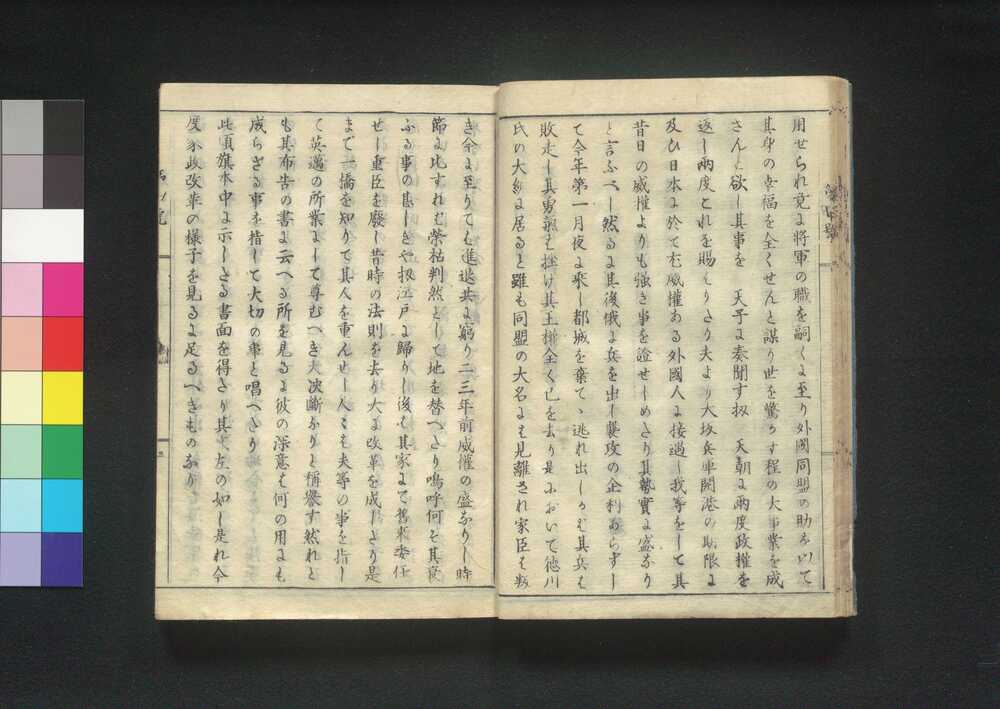 用せられ竟に将軍の職を嗣くに至り外國同盟の助を以て
其身の幸福を全くせんと謀り世を驚かす程の大事業を成
さんと欲し其事を　天子に奏聞す扨　天朝に両度政權を
返し両度これを賜えりたり夫より大坂兵庫開港の期限に
及ひ日本に於て尤威權ある外國人に接遇し我等をして其
昔日の威權よりも強き事を證せしめたり其勢實に盛なり
と言ふべし然るに其後俄に兵を出し襲攻の企利あらずし
て今年第一月夜に乘し都城を棄てゝ逃れ出しかば其兵は
敗走し其勇氣も挫け其王排全く已を去り是において徳川
氏の大統に居ると雖も同盟の大名にも見離され家臣も叛
き今に至りても進退共に窮り二三年前威權の盛なりし時
節に比すれば榮枯判然として地を替へたり嗚呼何ぞ其衰
ふる事の甚しきや扨江戸に歸りし後は其家にて舊来委任
せし重臣を廢し昔時の法則を去り大に改革を成したり是
まで一橋を知りて其人を重んせし人々も夫等の事を指し
て英邁の所業にして尊むべき大决斷なりと稱譽す然れと
も其布告の書に云へる所を見るに彼の深意は何の用にも
成らざる事を指して大切の事と唱へたり
此頃旗本中に示したる書面を得たり其文左の如し是れ今
度家政改革の様子を見るに足るべきものなり